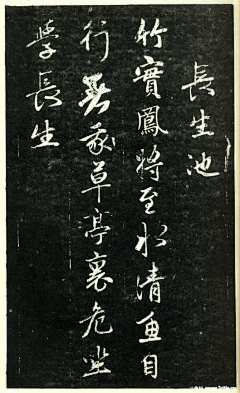 長生池
竹實鳳將至水清魚自
行君我草亭裏危坐
學長生